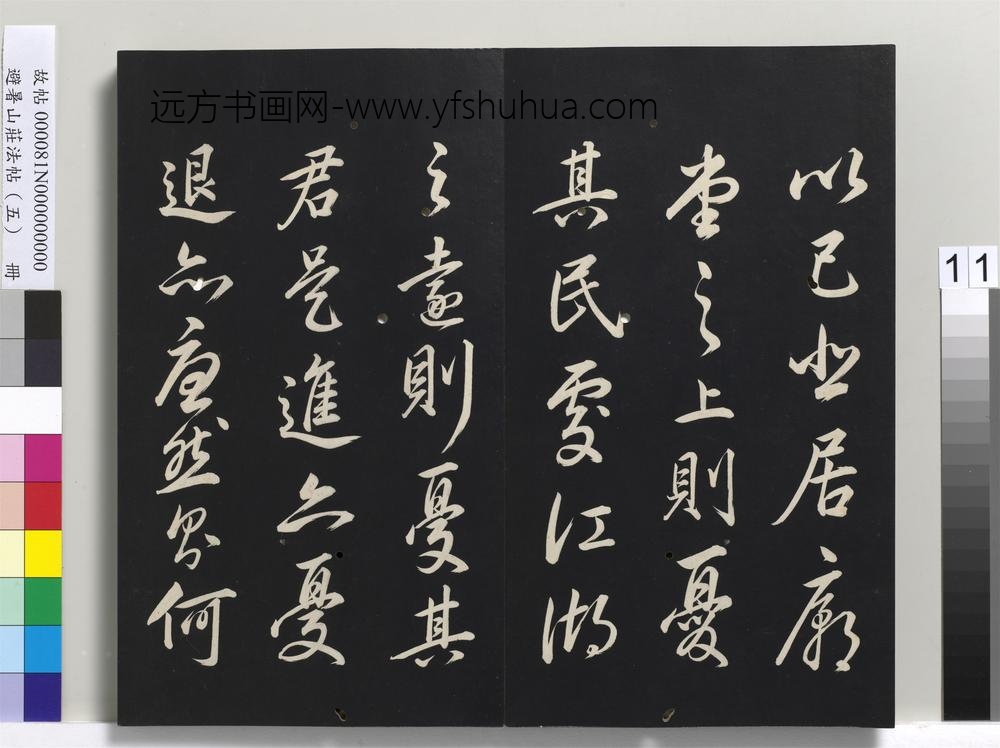 远方书画网-www.yfshuhua.com
以己悲居廟
堂之上則憂
其民處江湖
之遠則憂其
君是進亦憂
退亦憂然則何
故帖 000081N000000000
避暑山莊法帖（五） 冊
11